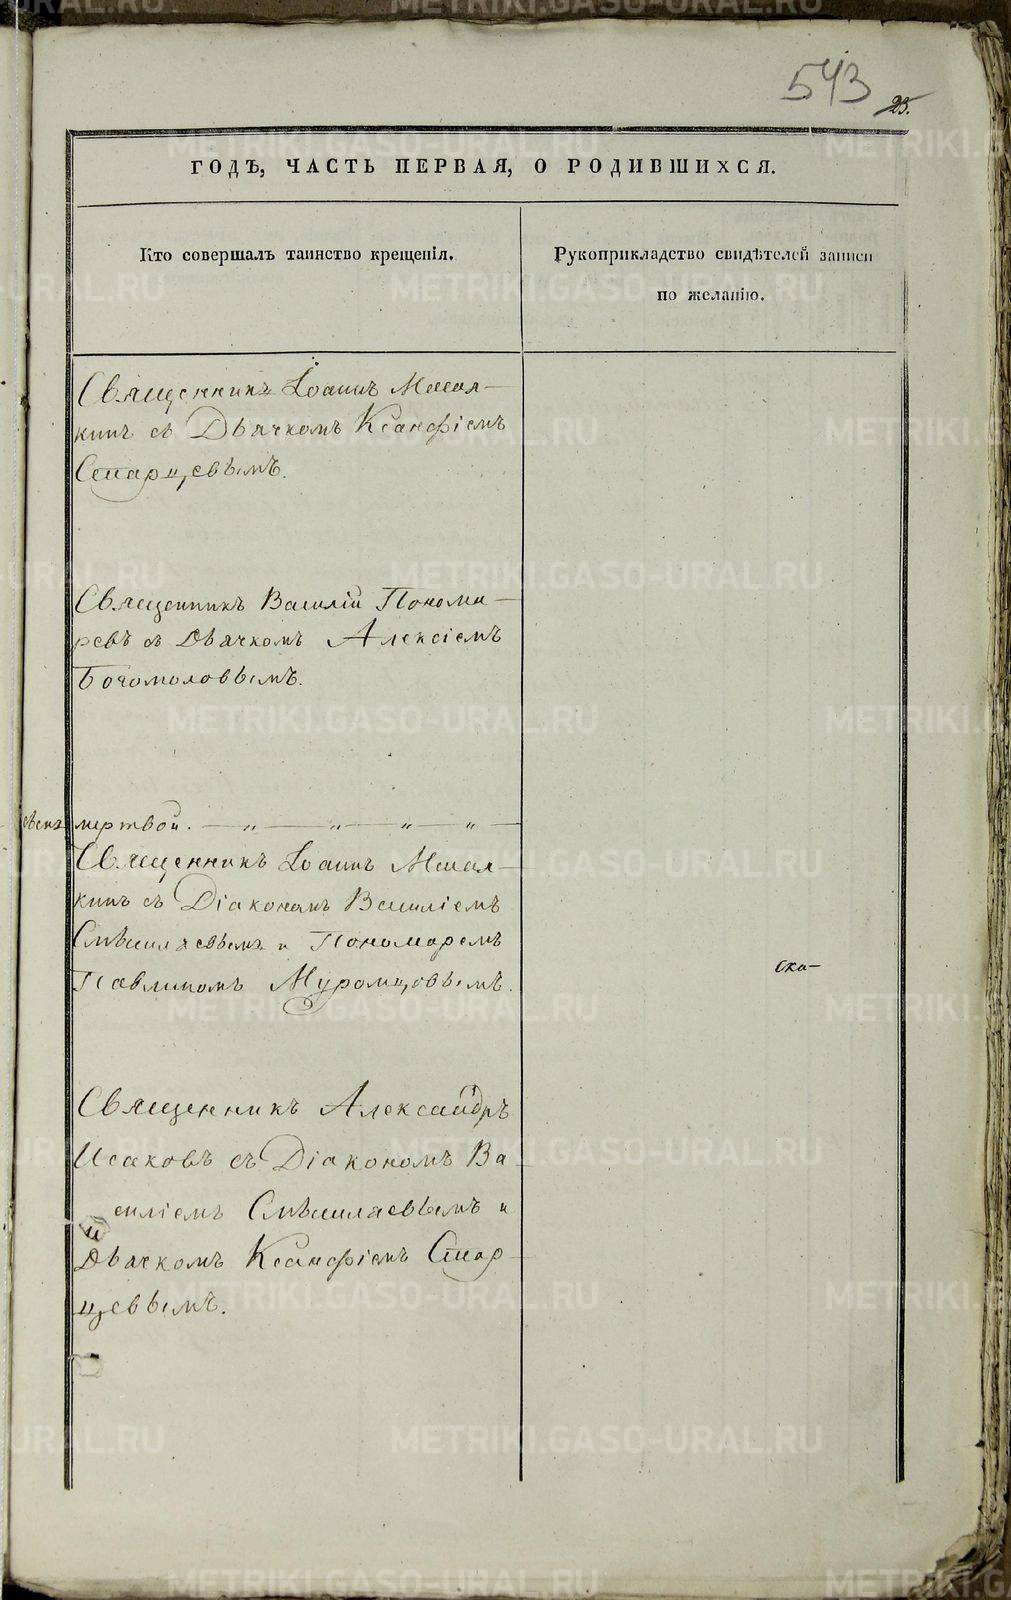 543
25.
ГОДѢ, ЧАСТЬ ПЕРВАЯ, О РОДИВШИХСЯ.
Кто совершалъ таинство крещенія.
Рукоприкладство свидѣтелей записи
по желанію.
Священникъ Іоаннъ
съ Дьячкомъ Ксанфіемъ
Старцевымъ.
Священникъ Василій Понома-
ревъ съ Дьячкомъ Алексіемъ
Богомоловымъ.
мертвой. — „ — „ — „ — „ —
Священникъ Іоаннъ
съ Діакономъ Василіемъ
Смѣшляевымъ и Пономаремъ
Павлиномъ Муромцовымъ.
ска-
Священникъ Александръ
Исаковъ съ Діакономъ Ва-
силіемъ Смѣшляевымъ и
Дьячкомъ Ксанфіемъ Стар-
цевымъ.
METRIKI.GASO-URAL.RU